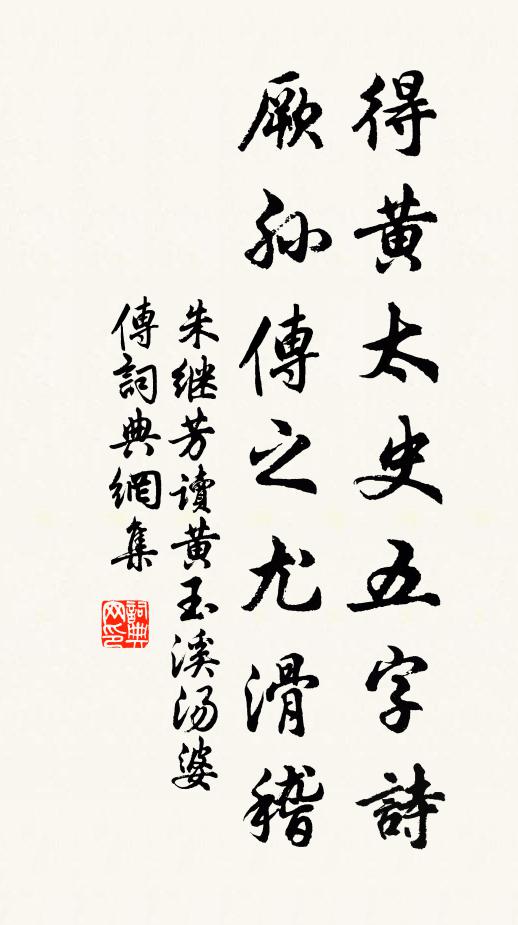 得黄太史五字詩
厥孙傳之尤滑稽
朱继芳讀黄玉溪汤婆
傳詞典網集
詞典网印